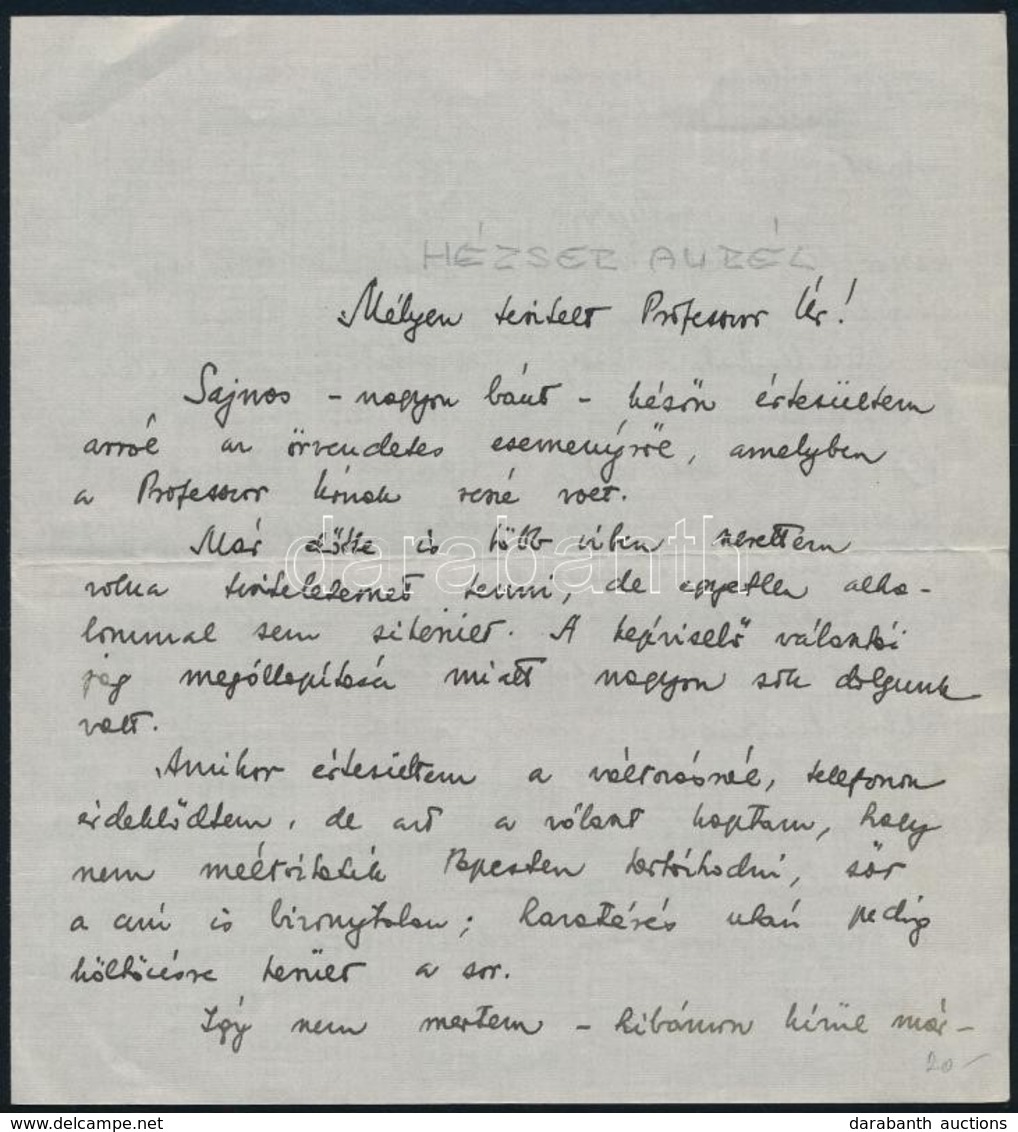 HÉZSER AURÉL
Mélyen tisztelt Professzor Úr!
Sajnos - nagyon bánt - későn értesültem
arról az örvendetes eseményről, amelyben
a Professzor Úrnak része volt.
Már előtte is több ízben szerettem
volna tiszteletemet tenni, de egyetlen alka-
lommal sem sikerült. A képviselő választói
jog megállapítása miatt nagyon sok dolgunk
volt.
Amikor értesültem a változásról, telefonon
érdeklődtem, de azt a választ kaptam, hogy
nem méltóztatik Pesten tartózkodni, sőt
a cím is bizonytalan; hazatérés után pedig
költözésre került a sor.
Így nem mertem - hibámon kívül már-
20-
darabanth
delcampe.net
darabanth auctions